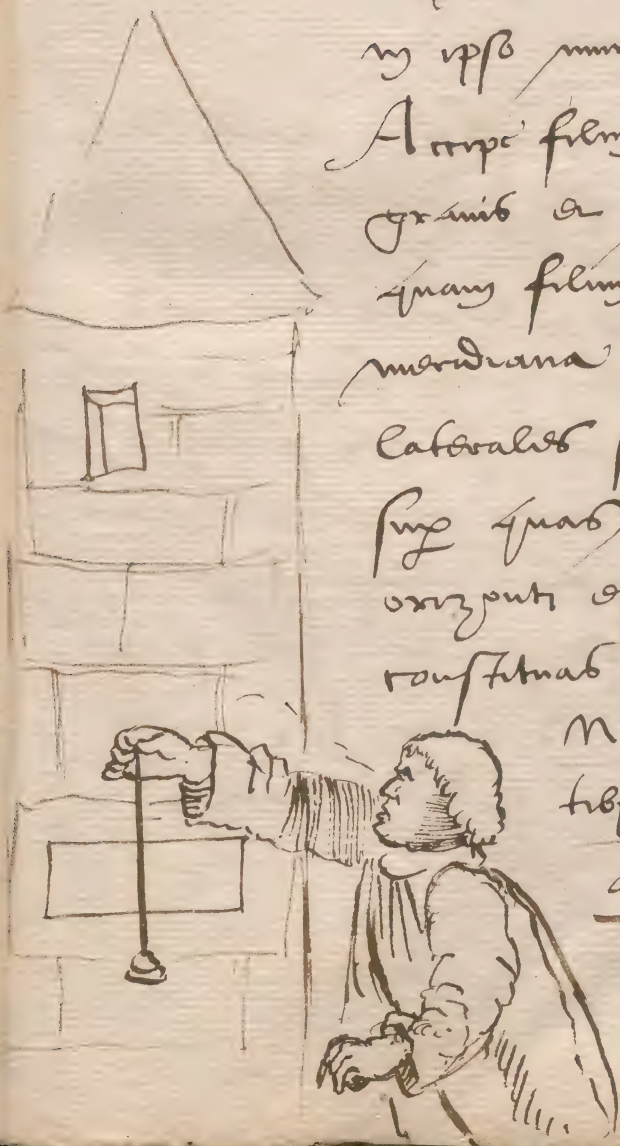 in ipso
Accipe filum
grauis et
quam filum
meridiana
laterales
sup quas
orizonti
constituas